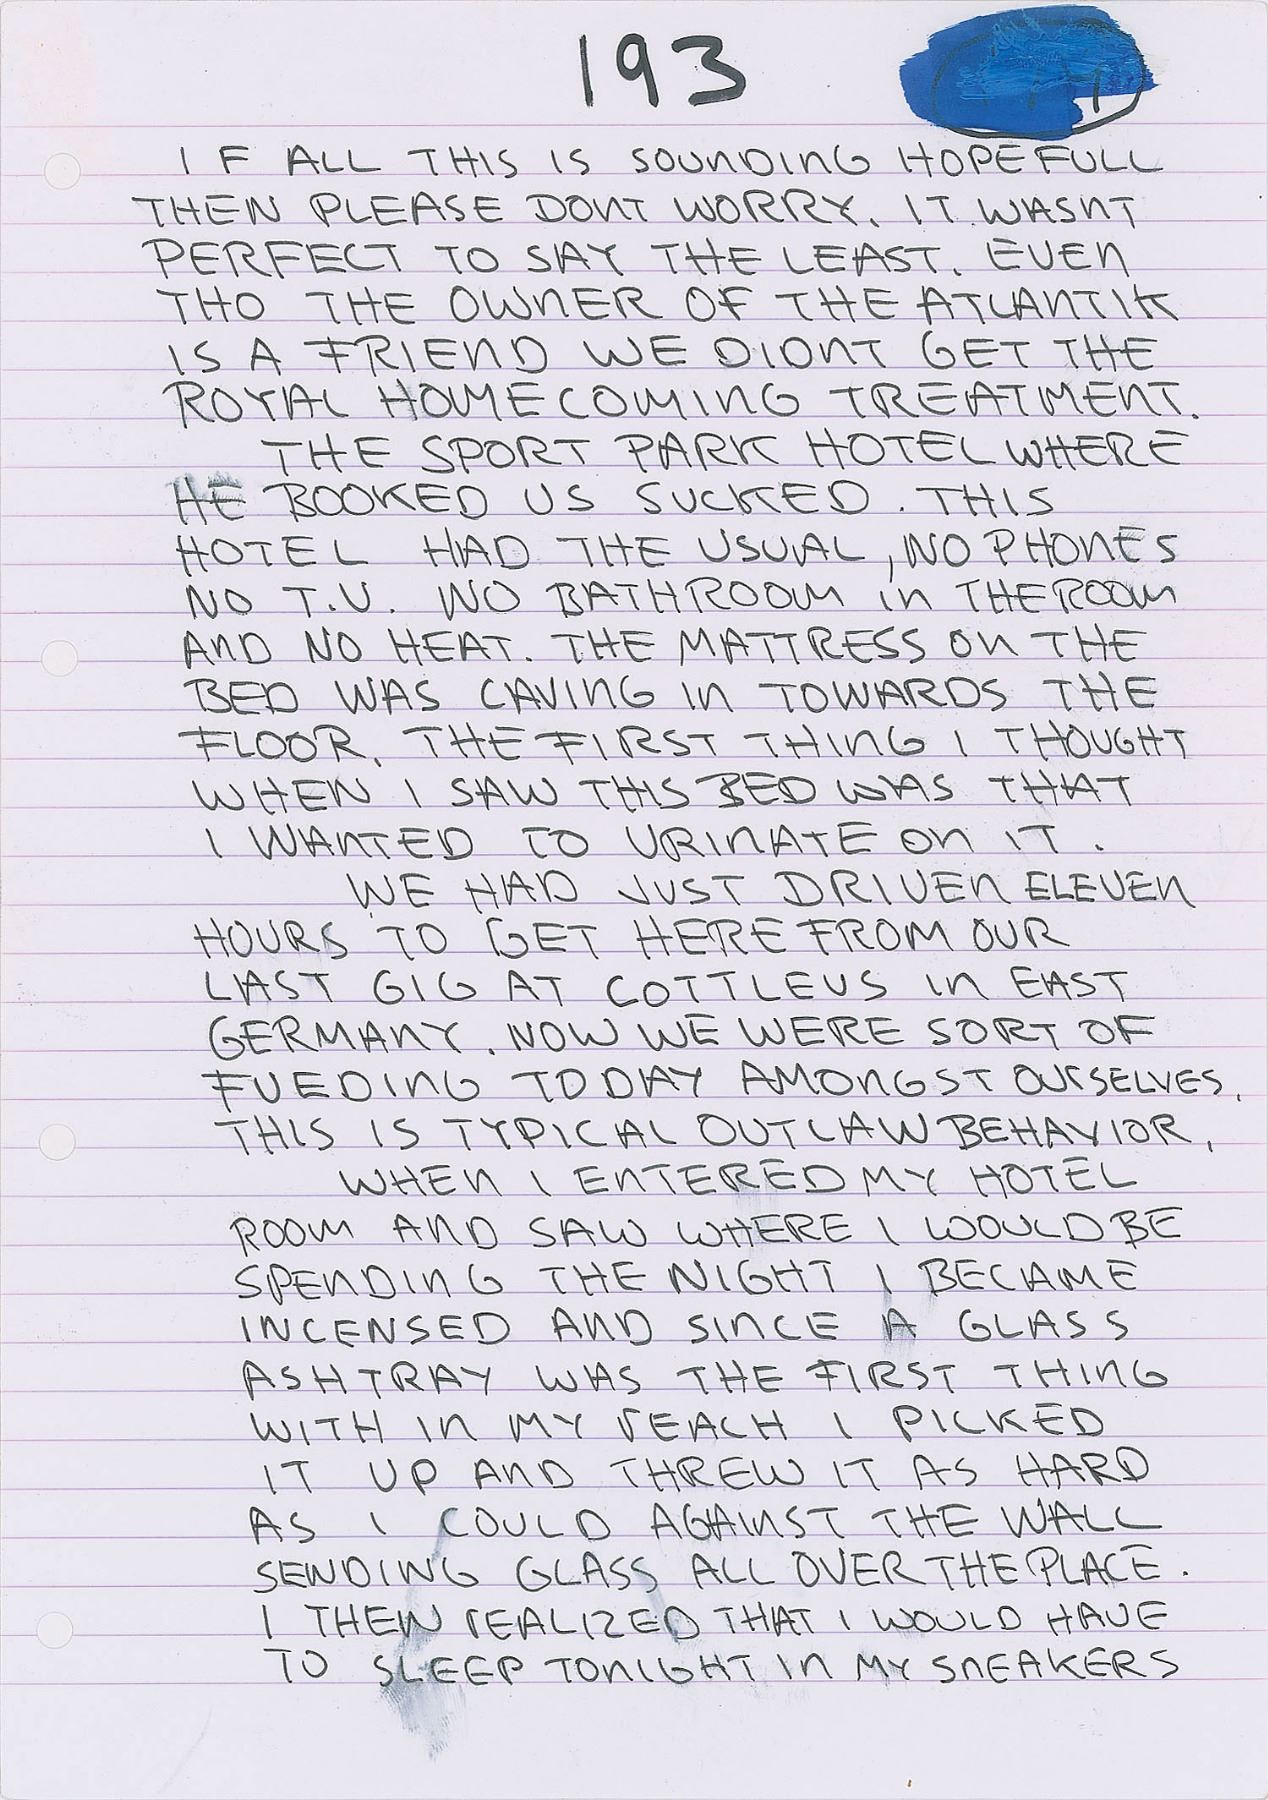 193
IF ALL THIS IS SOUNDING HOPEFULL
THEN PLEASE DONT WORRY. IT WASNT
PERFECT TO SAY THE LEAST. EVEN
THO THE OWNER OF THE ATLANTIK
IS A FRIEND WE DIDNT GET THE
ROYAL HOMECOMING TREATMENT.
THE SPORT PARK HOTEL WHERE
HE BOOKED US SUCKED. THIS
HOTEL HAD THE USUAL, NO PHONES
NO T.V. NO BATHROOM IN THE ROOM
AND NO HEAT. THE MATTRESS ON THE
BED WAS CAVING IN TOWARDS THE
FLOOR. THE FIRST THING I THOUGHT
WHEN I SAW THIS BED WAS THAT
I WANTED TO URINATE ON IT.
WE HAD JUST DRIVEN ELEVEN
HOURS TO GET HERE FROM OUR
LAST GIG AT COTTLEUS IN EAST
GERMANY. NOW WE WERE SORT OF
FUEDING TODAY AMONGST OURSELVES.
THIS IS TYPICAL OUTLAW BEHAVIOR.
WHEN I ENTERED MY HOTEL
ROOM AND SAW WHERE I WOULD BE
SPENDING THE NIGHT I BECAME
INCENSED AND SINCE A GLASS
ASHTRAY WAS THE FIRST THING
WITH IN MY REACH I PICKED
IT UP AND THREW IT AS HARD
AS I COULD AGAINST THE WALL
SENDING GLASS ALL OVER THE PLACE.
I THEN REALIZED THAT I WOULD HAVE
TO SLEEP TONIGHT IN MY SNEAKERS